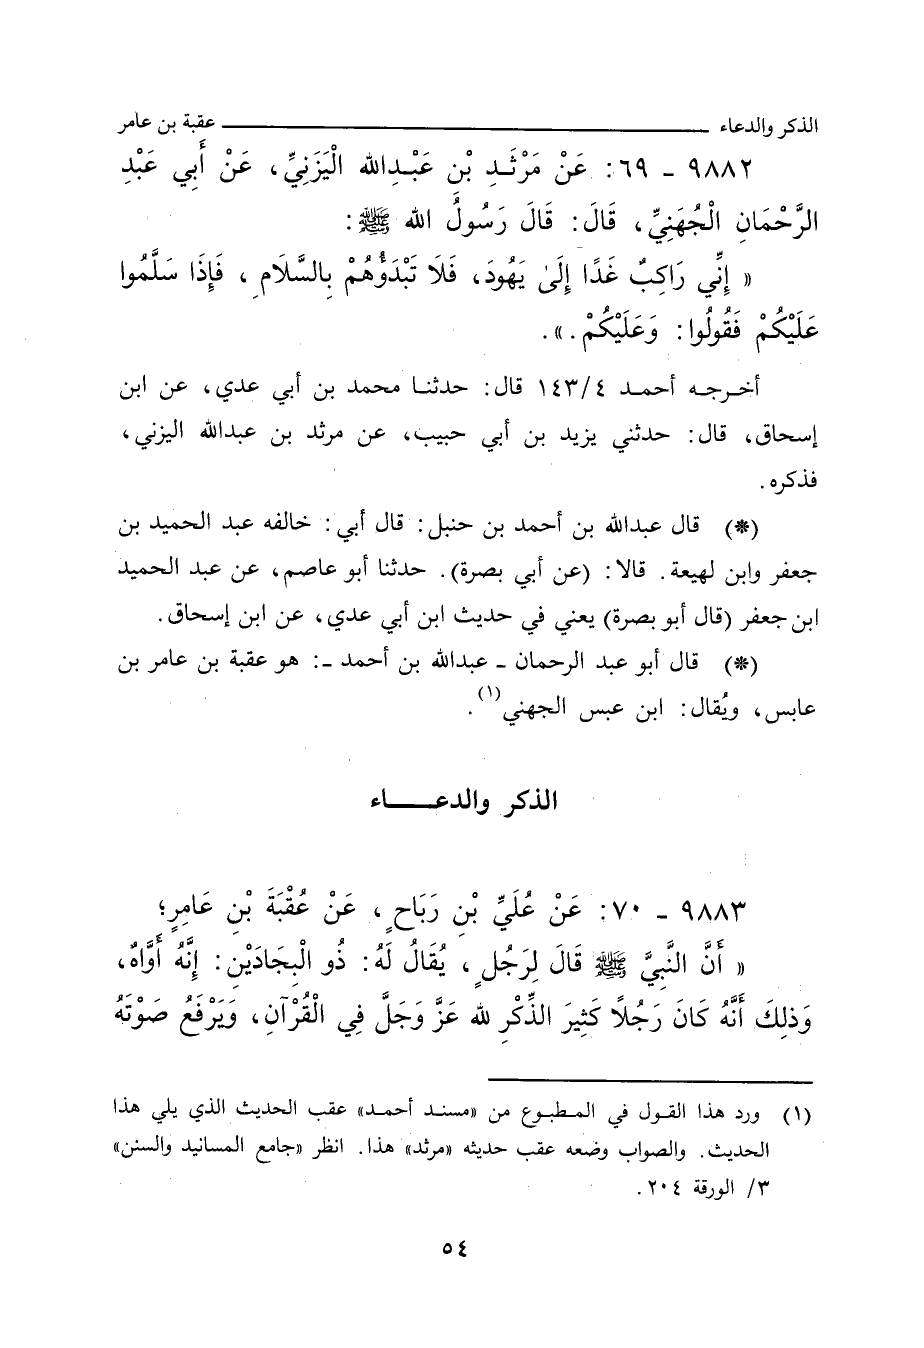 الذكر والدعاء ـــــــــــــــــــــــــــــــ عقبة بن عامر
٩٨٨٢ - ٦٩: عَنْ مَرْثَـدِ بْنِ عَبْـدِالله الْيَزَنِيِّ، عَنْ أَبِي عَبْدِ
الرَّحْمَانِ الْجُهَنِيِّ، قَالَ: قَالَ رَسُولُ الله ﷺ:
« إِنِّي رَاكِبٌ غَدًا إِلَىٰ يَهُودَ، فَلَا تَبْدَؤُهُمْ بِالسَّلَامِ ، فَإِذَا سَلَّمُوا
عَلَيْكُمْ فَقُولُوا: وَعَلَيْكُمْ.».
أخـرجـه أحمـد ١٤٣/٤ قال: حدثنـا محمد بن أبي عدي، عن ابن
إسحاق، قال: حدثني يزيد بن أبي حبيب، عن مرثد بن عبدالله اليزني،
فذكره.
(*) قال عبدالله بن أحمد بن حنبل: قال أبي: خالفه عبد الحميد بن
جعفر وابن لهيعة. قالا: (عن أبي بصرة). حدثنا أبو عاصم، عن عبد الحميد
ابن جعفر (قال أبو بصرة) يعني في حديث ابن أبي عدي، عن ابن إسحاق.
(*) قال أبو عبد الرحمان - عبدالله بن أحمد -: هو عقبة بن عامر بن
عابس، ويُقال: ابن عبس الجهني(١).
الذكر والدعـــــاء
٩٨٨٣ - ٧٠: عَنْ عُلَيِّ بْنِ رَبَاحٍ ، عَنْ عُقْبَةَ بْنِ عَامِرٍ؛
« أَنَّ النَّبِيَّ ﷺ قَالَ لِرَجُلٍ ، يُقَالُ لَهُ: ذُو الْبِجَادَيْنِ: إِنَّهُ أَوَّاهٌ،
وَذلِكَ أَنَّهُ كَانَ رَجُلًا كَثِيرَ الذِّكْرِ لله عَزَّ وَجَلَّ فِي الْقُرْآنِ، وَيَرْفَعُ صَوْتَهُ
(١) ورد هذا القـول في المـطبـوع من «مسنـد أحمـد» عقب الحديث الذي يلي هذا
الحديث. والصواب وضعه عقب حديثه «مرثد» هذا. انظر «جامع المسانيد والسنن»
٣/ الورقة ٢٠٤.
٥٤